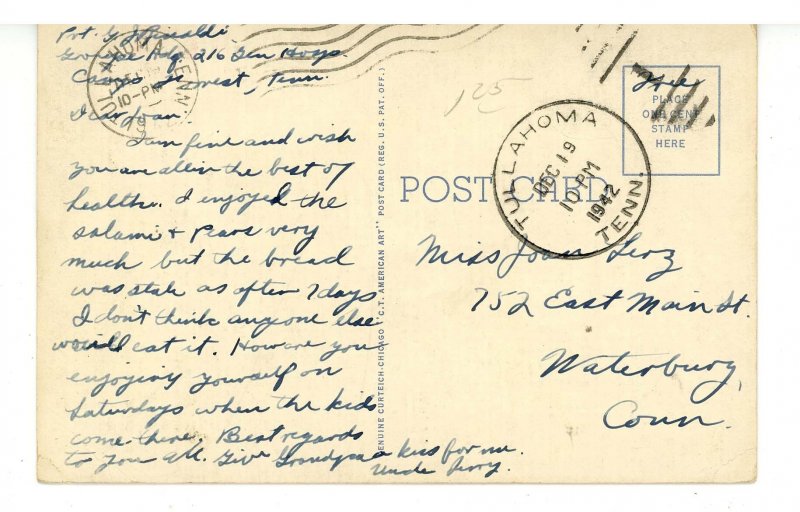 Pvt. G. Grinaldi
Hdq. 216 Gen Hosp.
Camp Forrest, Tenn.
Dear Joan:
I am fine and wish
you are all in the best of
health. I enjoyed the
salami + pears very
much but the bread
was stale as after 7 days
I don't think anyone else
will eat it. How are you
enjoying yourself on
Saturdays when the kids
come there. Best regards
to you all. Give Grandpa a kiss for me.
Uncle Jerry.
TULLAHOMA TENN.
10-PM
GENUINE CURTEICH-CHICAGO "C.T. AMERICAN ART" POST CARD (REG. U.S. PAT. OFF.)
125
Free
PLACE
ONE CENT
STAMP
HERE
POST CARD
TULLAHOMA
DEC 19
10 PM
1942
TENN.
Miss Joan
752 East Main St.
Waterbury,
Conn.